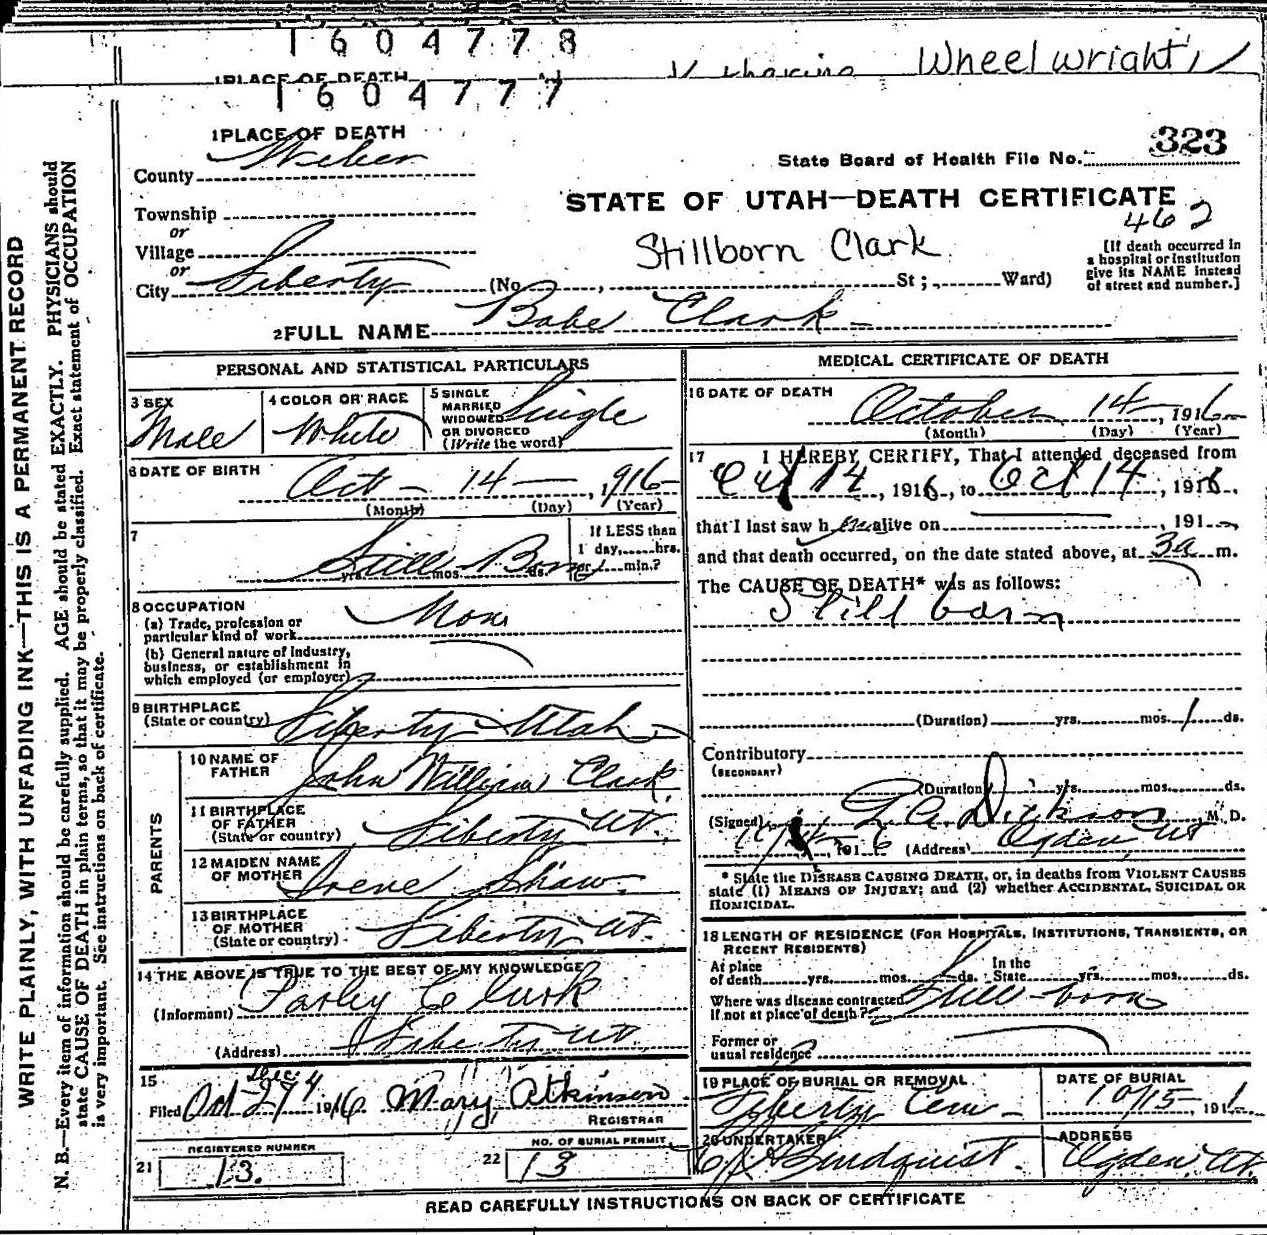 1604778
Wheelwright
1 PLACE OF DEATH
1604777
1 PLACE OF DEATH
County Weber
State Board of Health File No. 323
Township
or
Village
or
City Liberty
STATE OF UTAH—DEATH CERTIFICATE
462
Stillborn Clark
(No , St ; , Ward)
[If death occurred in
a hospital or institution
give its NAME instead
of street and number.]
2 FULL NAME Babe Clark
PERSONAL AND STATISTICAL PARTICULARS
3 SEX
Male
4 COLOR OR RACE
White
5 SINGLE
MARRIED
WIDOWED
OR DIVORCED
(Write the word)
Single
6 DATE OF BIRTH
Oct 14 , 1916
(Month) (Day) (Year)
7
Still Born
yrs. mos. ds.
If LESS than
1 day, hrs.
or min.?
8 OCCUPATION
(a) Trade, profession or
particular kind of work
(b) General nature of industry,
business, or establishment in
which employed (or employer)
9 BIRTHPLACE
(State or country) Liberty Utah
PARENTS
10 NAME OF
FATHER John William Clark
11 BIRTHPLACE
OF FATHER
(State or country) Liberty Ut.
12 MAIDEN NAME
OF MOTHER Irene Shaw
13 BIRTHPLACE
OF MOTHER
(State or country) Liberty Ut.
14 THE ABOVE IS TRUE TO THE BEST OF MY KNOWLEDGE
(Informant) Parley Clark
(Address) Liberty Ut.
15
Filed Oct 27 1916 Mary Atkinson
REGISTRAR
REGISTERED NUMBER
21 13.
NO. OF BURIAL PERMIT
22 13
MEDICAL CERTIFICATE OF DEATH
16 DATE OF DEATH
October 14 , 1916
(Month) (Day) (Year)
17 I HEREBY CERTIFY, That I attended deceased from
Oct 14 , 1916, to Oct 14 , 1916,
that I last saw h alive on , 191
and that death occurred, on the date stated above, at 3a m.
The CAUSE OF DEATH* was as follows:
Still born
(Duration) yrs. mos. 1 ds.
Contributory
(SECONDARY)
(Duration) yrs. mos. ds.
(Signed) Dickson , M. D.
, 191 (Address) Ogden, Ut
* State the DISEASE CAUSING DEATH, or, in deaths from VIOLENT CAUSES
state (1) MEANS OF INJURY; and (2) whether ACCIDENTAL, SUICIDAL OR
HOMICIDAL.
18 LENGTH OF RESIDENCE (FOR HOSPITALS, INSTITUTIONS, TRANSIENTS, OR
RECENT RESIDENTS)
At place
of death yrs. mos. ds.
In the
State yrs. mos. ds.
Where was disease contracted
If not at place of death? Still born
Former or
usual residence
19 PLACE OF BURIAL OR REMOVAL
Liberty Cem
DATE OF BURIAL
10/15 , 191
20 UNDERTAKER
Lindquist
ADDRESS
Ogden, Ut.
READ CAREFULLY INSTRUCTIONS ON BACK OF CERTIFICATE
WRITE PLAINLY, WITH UNFADING INK—THIS IS A PERMANENT RECORD
N. B.—Every item of information should be carefully supplied. AGE should be stated EXACTLY. PHYSICIANS should
state CAUSE OF DEATH in plain terms, so that it may be properly classified. Exact statement of OCCUPATION
is very important. See instructions on back of certificate.